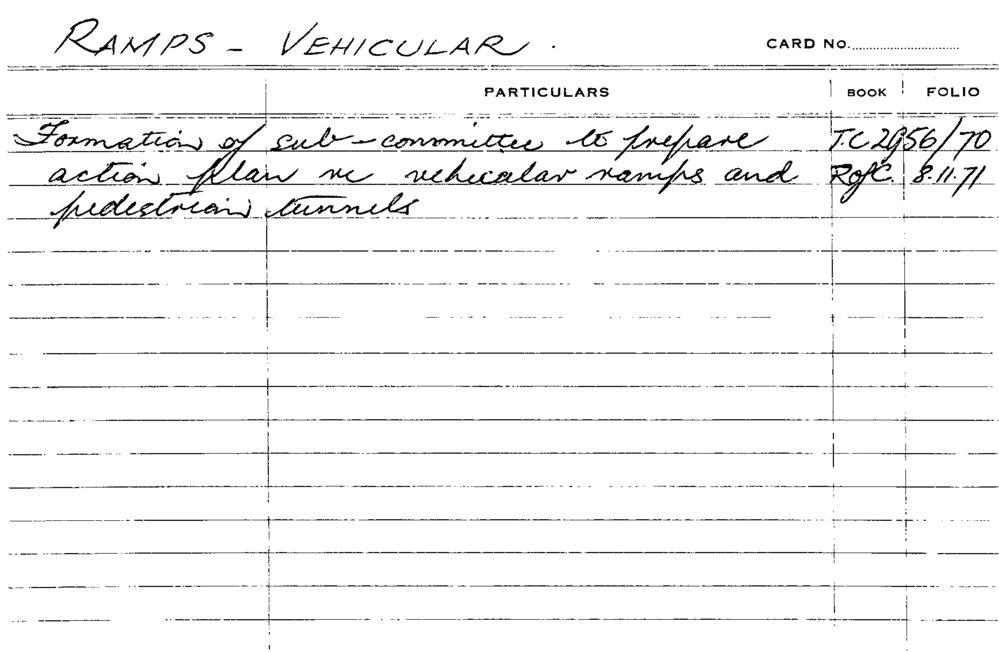 RAMPS - VEHICULAR.
CARD No.
PARTICULARS BOOK FOLIO
Formation of sub-committee to prepare T.C 2956/70
action plan re vehicular ramps and R of C. 8.11.71
pedestrian tunnels